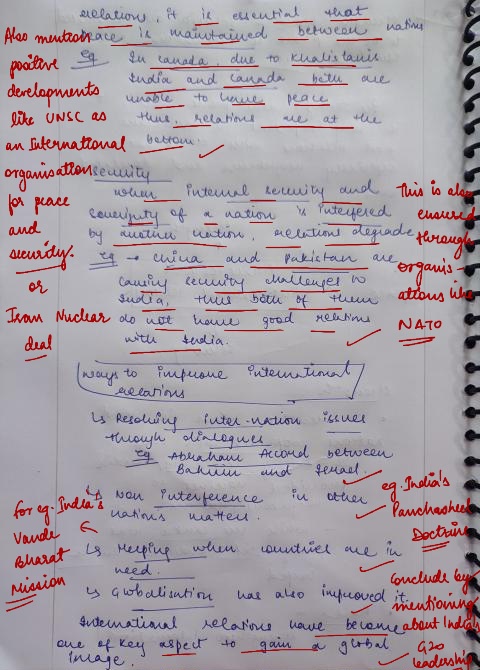 relations, it is essential that
peace is maintained between nations
eg In Canada, due to Khalistanis
India and Canada both are
unable to have peace
thus, relations are at the
bottom.
Also mention
positive
developments
like UNSC as
an International
organisation
for peace
and
security.
or
Iran Nuclear
deal
security
when internal security and
of a nation is interfered
by another nation, relations degrade
eg → China and Pakistan are
causing security challenges to
India, thus both of them
do not have good relations
with India.
This is also
ensured
through
organis-
ations like
NATO
ways to improve international
relations
↳ Resolving inter-nation issues
through dialogues
eg Abraham Accord between
Bahrain and Israel.
↳ Non interference in other
nation's matters.
eg. India's
Panchasheel
Doctrine
↳ Helping when countries are in
need.
for eg. India's
Vande
Bharat
Mission
↳ Globalisation has also improved it.
International relations have become
one of key aspect to gain a global
image.
Conclude by
mentioning
about India's
G20
leadership